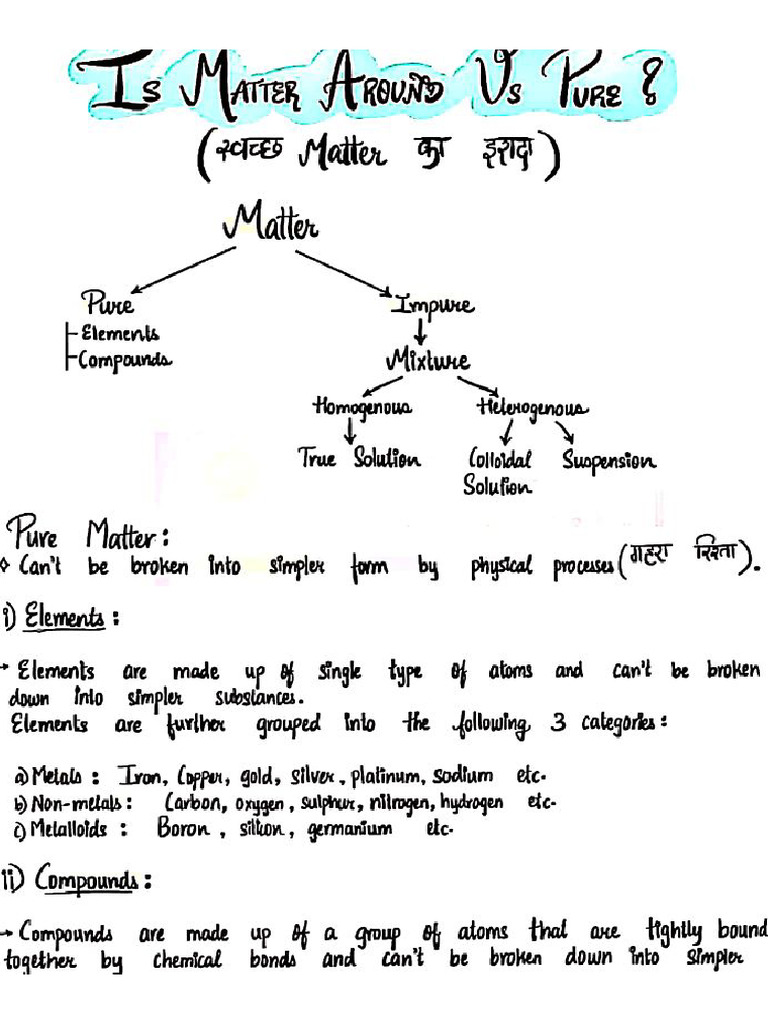 Is Matter Around Us Pure ?
(स्वच्छ Matter का इरादा)
Matter
Pure
Impure
Elements
Compounds
Mixture
Homogenous
Heterogenous
True Solution
Colloidal Solution
Suspension
Pure Matter:
Can't be broken into simpler form by physical processes (गहरा रिश्ता).
i) Elements:
→ Elements are made up of single type of atoms and can't be broken
down into simpler substances.
Elements are further grouped into the following 3 categories:
a) Metals: Iron, Copper, gold, silver, platinum, sodium etc.
b) Non-metals: Carbon, oxygen, sulphur, nitrogen, hydrogen etc.
c) Metalloids: Boron, silicon, germanium etc.
ii) Compounds:
→ Compounds are made up of a group of atoms that are tightly bound
together by chemical bonds and can't be broken down into simpler